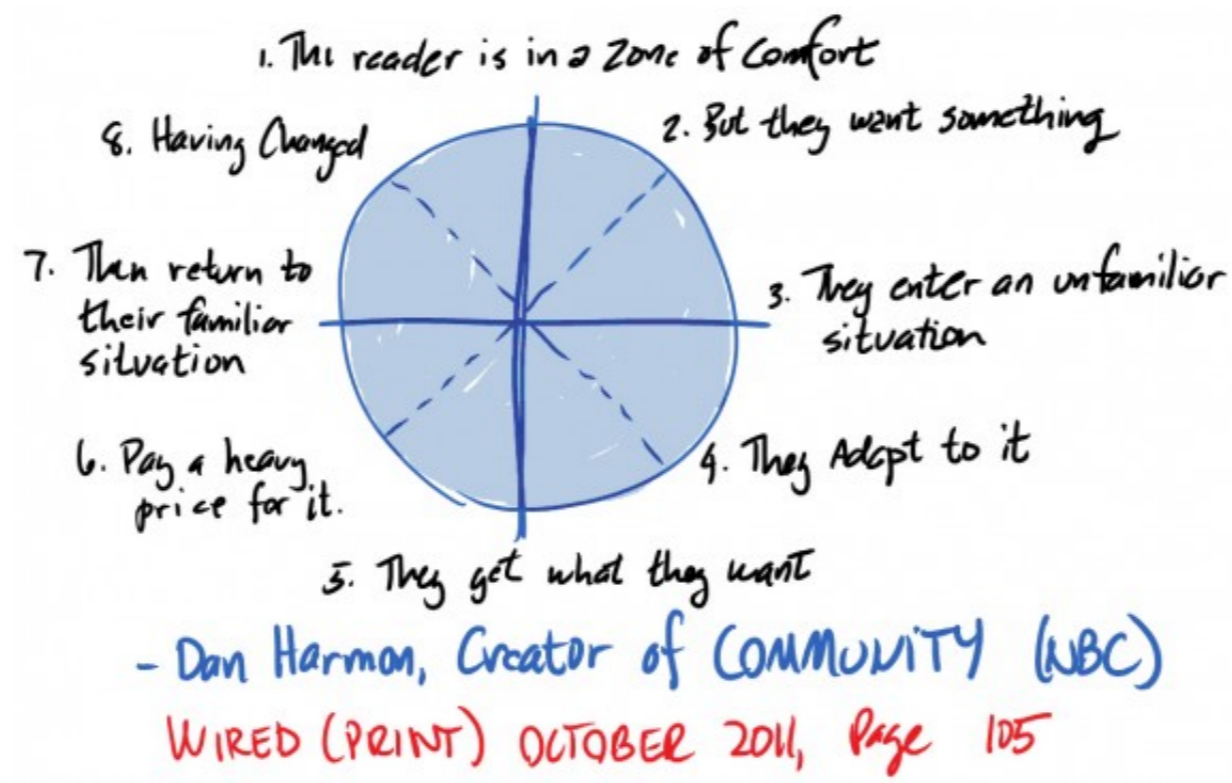 1. The reader is in a zone of comfort
2. But they want something
3. They enter an unfamilior
situation
4. They Adapt to it
5. They get what they want
6. Pay a heavy
price for it.
7. Then return to
their familior
situation
8. Having Changed
- Dan Harmon, Creator of COMMUNITY (NBC)
WIRED (PRINT) OCTOBER 2011, Page 105